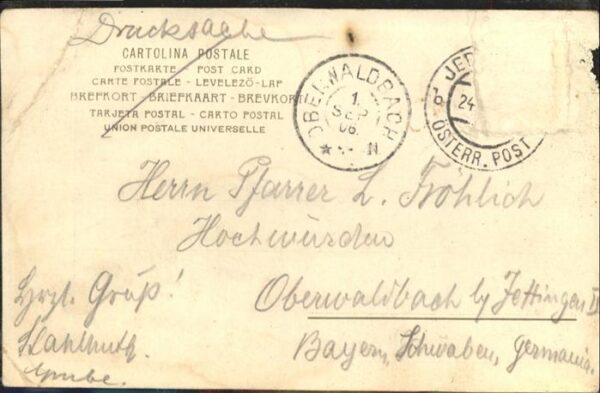 Drucksache
CARTOLINA POSTALE
POSTKARTE - POST CARD
CARTE POSTALE - LEVELEZŐ-LAP
BREFKORT - BRIEFKAART - BREVKORT
TARJETA POSTAL - CARTO POSTAL
UNION POSTALE UNIVERSELLE
OBERWALDBACH
1.
SEP
06.
N
JE
24
ÖSTERR. POST
Herrn Pfarrer L. Fröhlich
Hochwürden
Oberwaldbach by Jettingen
Bayern, Schwaben, Germania.
Hrzl. Gruß!